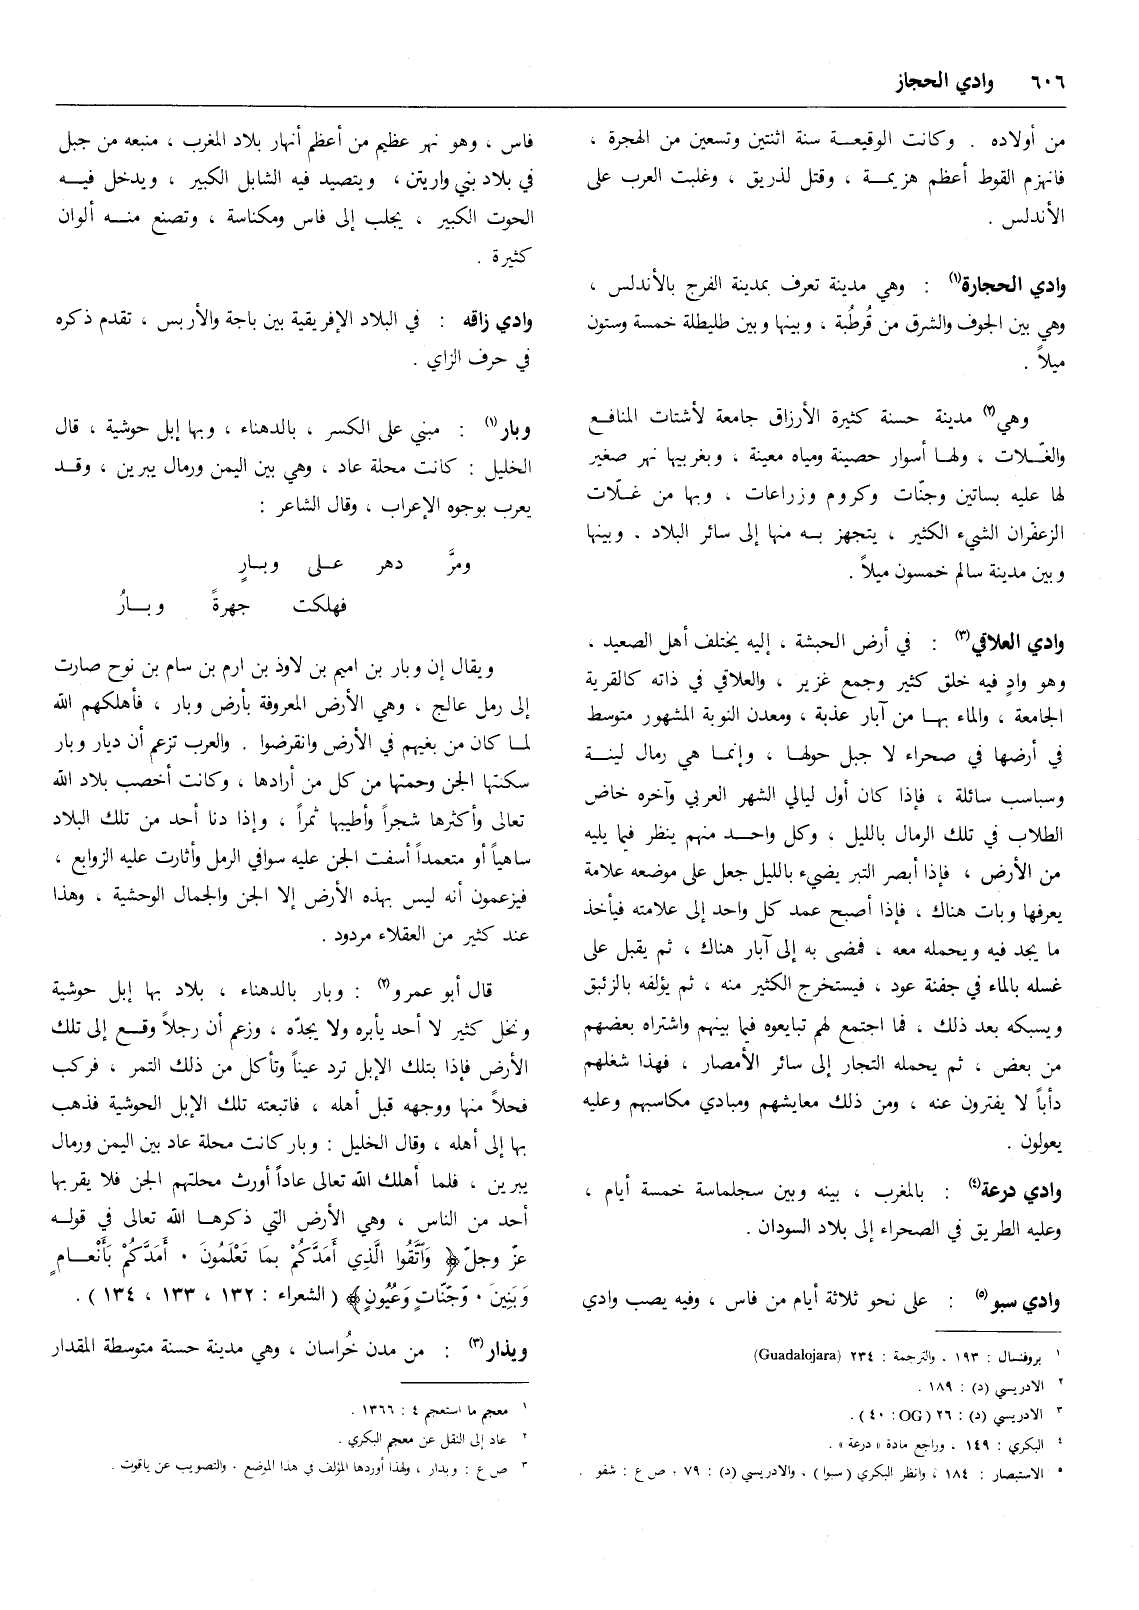 ٦٠٦ وادي الحجاز
من أولاده . وكانت الوقيعـــة سنة اثنتين وتسعين من الهجرة ،
فانهزم القوط أعظم هزيمـــة ، وقتل لذريق ، وغلبت العرب على
الأندلس .
وادي الحجارة(١) : وهي مدينة تعرف بمدينة الفرج بالأندلس ،
وهي بين الجوف والشرق من قُرطُبة ، وبينها وبين طليطلة خمسة وستون
ميلاً .
وهي(٢) مدينة حسنة كثيرة الأرزاق جامعة لأشتات المنافـــع
والغّـــلات ، ولهــا أسوار حصينة ومياه معينة ، وبغربيها نهر صغير
لها عليه بساتين وجنّات وكروم وزراعات ، وبها من غـــلّات
الزعفران الشيء الكثير ، يتجهز بـــه منها إلى سائر البلاد . وبينها
وبين مدينة سالم خمسون ميلاً .
وادي العلاقي(٣) : في أرض الحبشة ، إليه يختلف أهل الصعيد ،
وهو وادٍ فيه خلق كثير وجمع غزير ، والعلاقي في ذاته كالقرية
الجامعة ، والماء بهــا من آبار عذبة ، ومعدن النوبة المشهور متوسط
في أرضها في صحراء لا جبل حولهــا ، وإنمــا هي رمال لينـــة
وسباسب سائلة ، فإذا كان أول ليالي الشهر العربي وآخره خاض
الطلاب في تلك الرمال بالليل ، وكل واحـــد منهم ينظر فيما يليه
من الأرض ، فإذا أبصر التبر يضيء بالليل جعل على موضعه علامة
يعرفها وبات هناك ، فإذا أصبح عمد كل واحد إلى علامته فيأخذ
ما يجد فيه ويحمله معه ، فمضى به إلى آبار هناك ، ثم يقبل على
غسله بالماء في جفنة عود ، فيستخرج الكثير منه ، ثم يؤلفه بالزئبق
ويسبكه بعد ذلك ، فما اجتمع لهم تبايعوه فيما بينهم واشتراه بعضهم
من بعض ، ثم يحمله التجار إلى سائر الأمصار ، فهذا شغلهم
دأباً لا يفترون عنه ، ومن ذلك معايشهم ومبادي مكاسبهم وعليه
يعولون .
وادي درعة(٤) : بالمغرب ، بينه وبين سجلماسة خمسة أيام ،
وعليه الطريق في الصحراء إلى بلاد السودان .
وادي سبو(٥) : على نحو ثلاثة أيام من فاس ، وفيه يصب وادي
١ بروفنسال : ١٩٣ ، والترجمة : ٢٣٤ (Guadalojara)
٢ الادريسي (د) : ١٨٩ .
٣ الادريسي (د) : ٢٦ (OG : ٤٠) .
٤ البكري : ١٤٩ ، وراجع مادة « درعة » .
٥ الاستبصار : ١٨٤ ، وانظر البكري ( سبوا ) ، والادريسي (د) : ٧٩ ، ص ع : شفو .
فاس ، وهو نهر عظيم من أعظم أنهار بلاد المغرب ، منبعه من جبل
في بلاد بني واريتن ، ويتصيد فيه الشابل الكبير ، ويدخل فيـــه
الحوت الكبير ، يجلب إلى فاس ومكناسة ، وتصنع منـــه ألوان
كثيرة .
وادي زاقه : في البلاد الإفريقية بين باجة والأربس ، تقدم ذكره
في حرف الزاي .
وبار(١) : مبني على الكسر ، بالدهناء ، وبها إبل حوشية ، قال
الخليل : كانت محلة عاد ، وهي بين اليمن ورمال يبرين ، وقـــد
يعرب بوجوه الإعراب ، وقال الشاعر :
ومرَّ دهر عـــلى وبـــارٍ
فهلكت جهرةً وبـــارُ
ويقال إن وبار بن اميم بن لاوذ بن ارم بن سام بن نوح صارت
إلى رمل عالج ، وهي الأرض المعروفة بأرض وبار ، فأهلكهم الله
لمــا كان من بغيهم في الأرض وانقرضوا . والعرب تزعم أن ديار وبار
سكنتها الجن وحمتها من كل من أرادها ، وكانت أخصب بلاد الله
تعالى وأكثرها شجراً وأطيبها ثمراً ، وإذا دنا أحد من تلك البلاد
ساهياً أو متعمداً أسفت الجن عليه سوافي الرمل وأثارت عليه الزوابع ،
فيزعمون أنه ليس بهذه الأرض إلا الجن والجمال الوحشية ، وهذا
عند كثير من العقلاء مردود .
قال أبو عمرو(٢) : وبار بالدهناء ، بلاد بها إبل حوشية
ونخل كثير لا أحد يأبره ولا يجدّه ، وزعم أن رجلاً وقـــع إلى تلك
الأرض فإذا بتلك الإبل ترد عيناً وتأكل من ذلك التمر ، فركب
فحلاً منها ووجهه قبل أهله ، فاتبعته تلك الإبل الحوشية فذهب
بها إلى أهله ، وقال الخليل : وبار كانت محلة عاد بين اليمن ورمال
يبرين ، فلما أهلك الله تعالى عاداً أورث محلتهم الجن فلا يقربها
أحد من الناس ، وهي الأرض التي ذكرهــا الله تعالى في قولـــه
عزّ وجلّ ﴿ وَاتَّقُوا الَّذِي أَمَدَّكُمْ بِمَا تَعْلَمُونَ ۰ أَمَدَّكُمْ بِأَنْعـــامٍ
وَبَنِينَ ۰ وَجَنَّاتٍ وَعُيُونٍ ﴾ ( الشعراء : ١٣٢ ، ١٣٣ ، ١٣٤ ) .
ويذار(٣) : من مدن خُراسان ، وهي مدينة حسنة متوسطة المقدار
١ معجم ما استعجم ٤ : ١٣٦٦ .
٢ عاد إلى النقل عن معجم البكري .
٣ ص ع : وبدار ، ولهذا أوردها المؤلف في هذا الموضع ، والتصويب عن ياقوت .